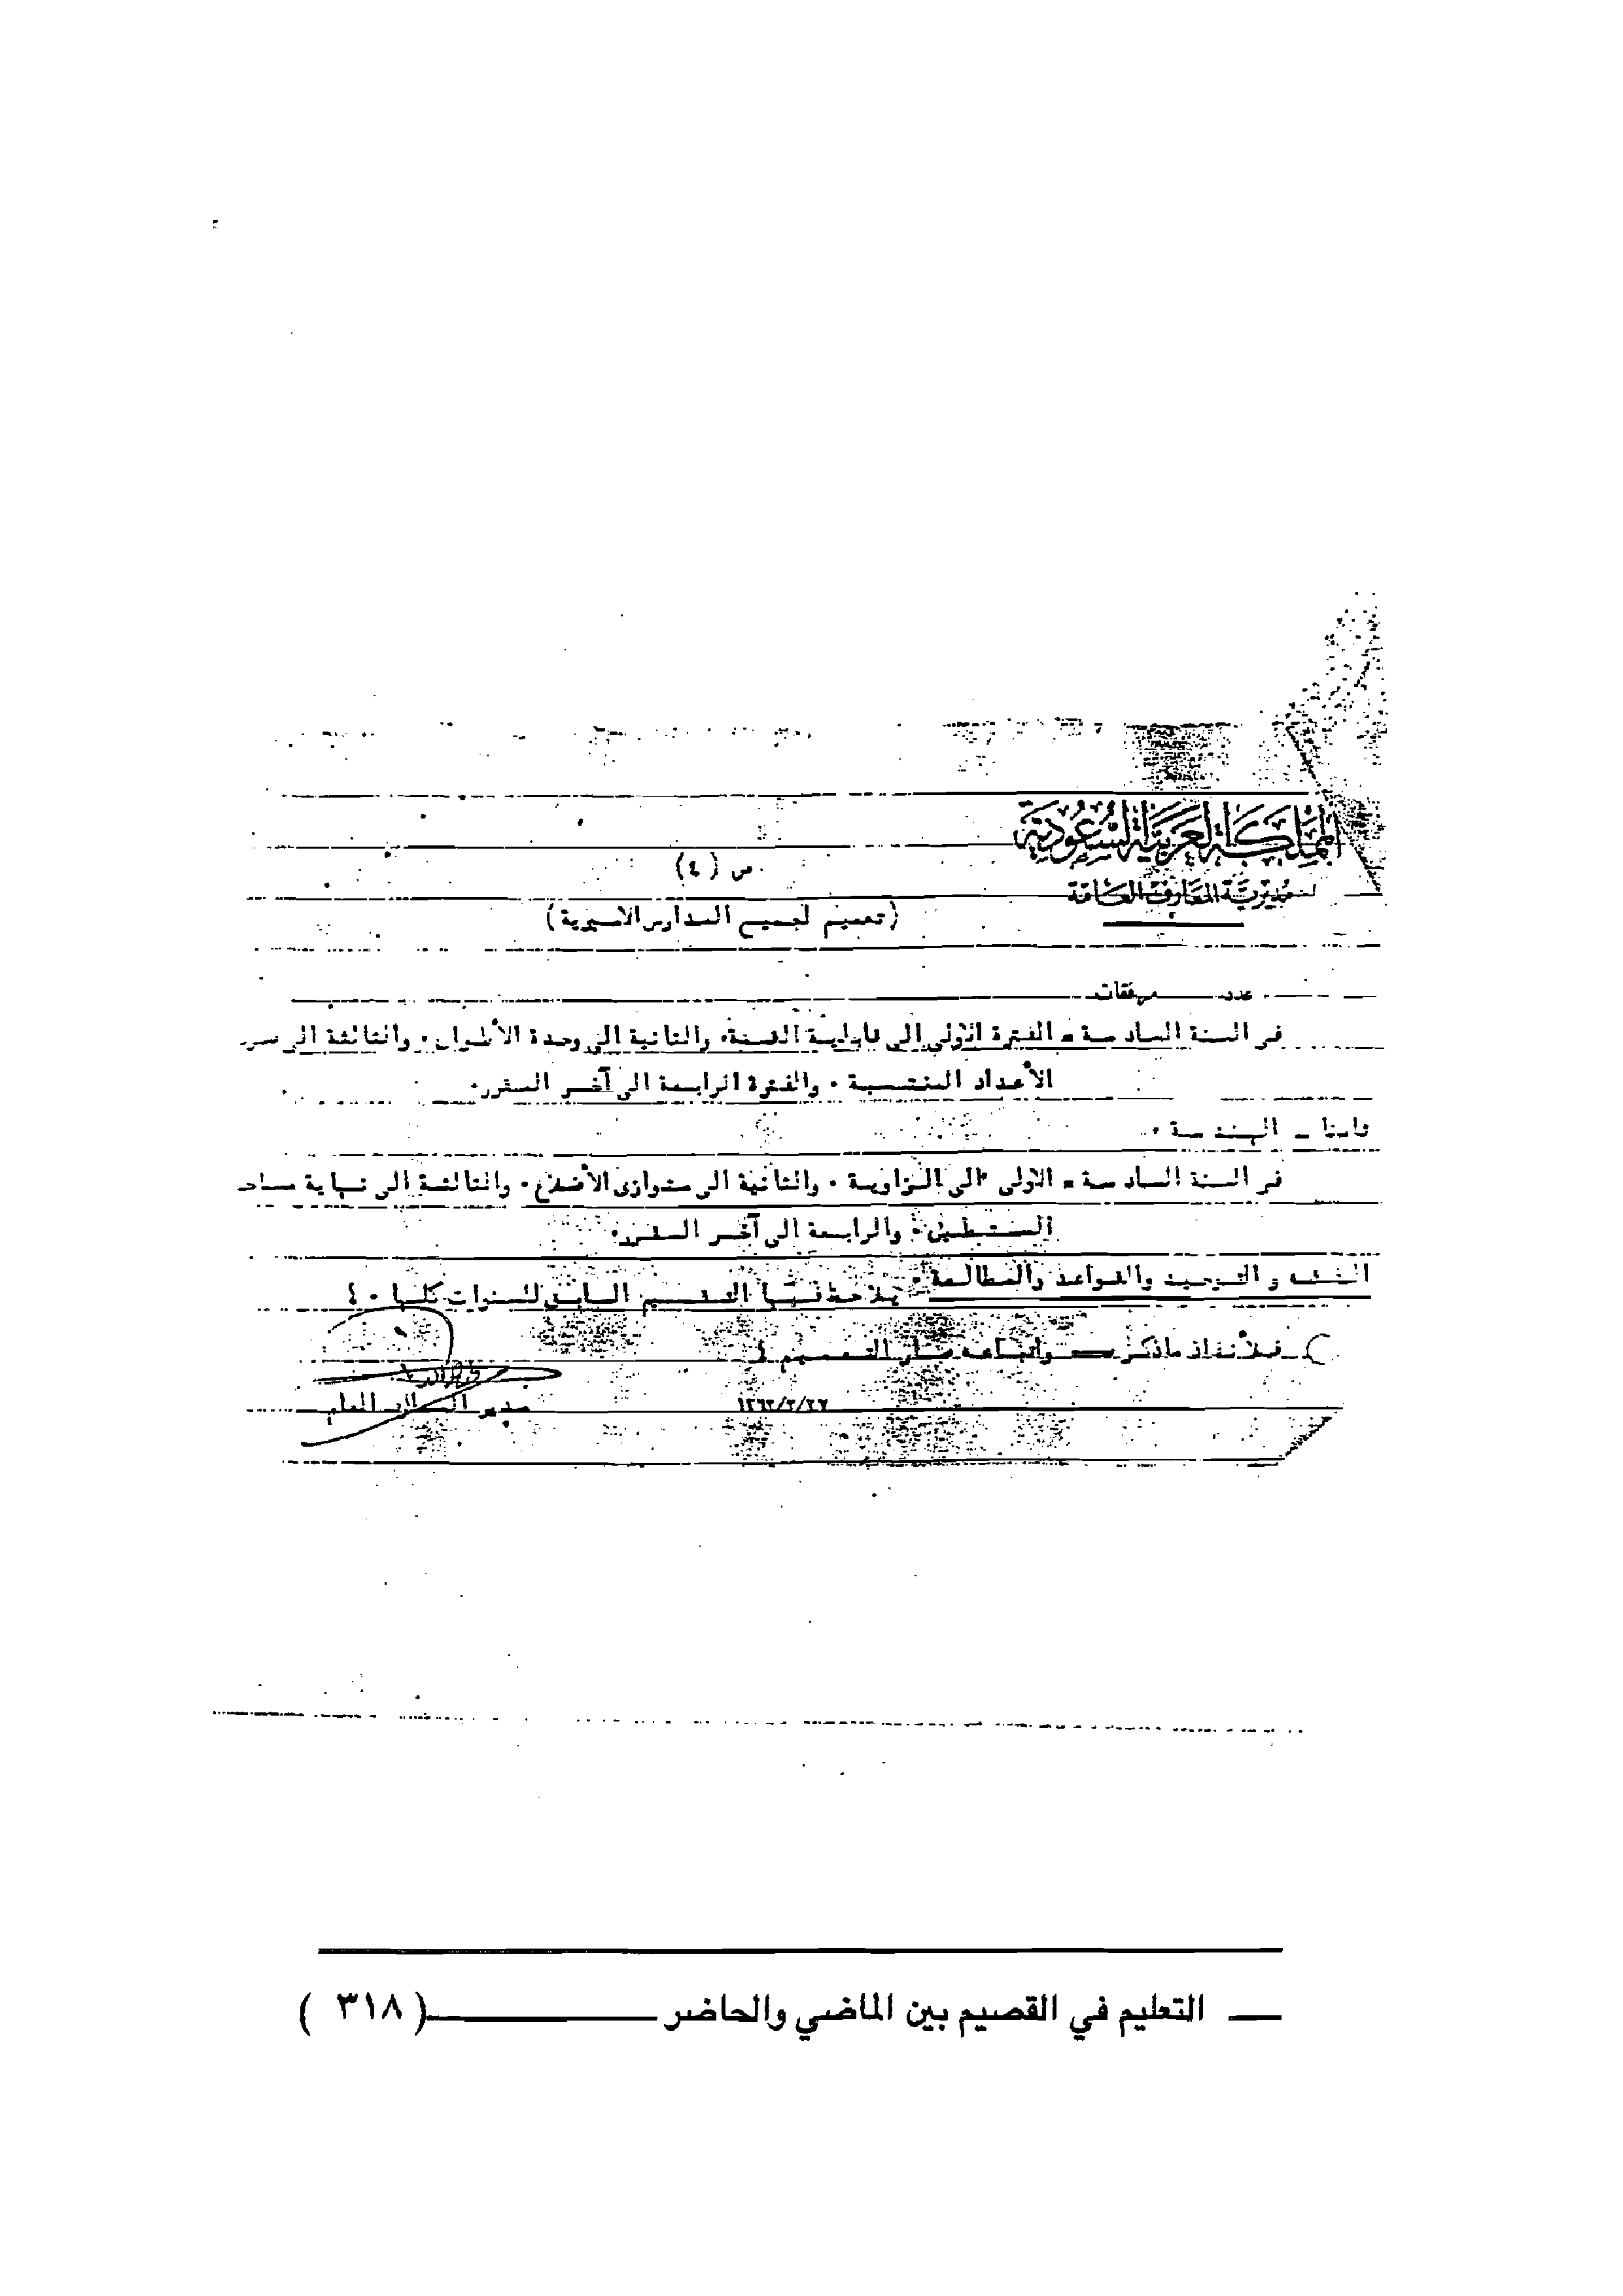 المملكة العربية السعودية
مديرية المعارف العامة
ص (٤)
(تعميم لجميع المدارس الاميرية)
عدد مرفقات
في السنة السادسة = الفترة الاولى إلى قابلية القسمة٠ والثانية الى وحدة الأطوال٠ والثالثة الى
الأعداد المنتسبة ٠ والفترة الرابعة الى آخر المقرر٠
ثامنا _ الهندسة ٠
في السنة السادسة = الاولى الى الزاوية ٠ والثانية الى متوازى الأضلاع٠ والثالثة الى نهاية
المستطيل ٠ والرابعة الى آخر المقرر٠
الفقه و التوحيد والقواعد والمطالعة٠ يلاحظ فيها التقسيم السابق للسنوات كلها ٠ ٤
فلأنفاذ ماذكر واتباعه صار التعميم
مدير المعارف العام
التعليم في القصيم بين الماضي والحاضر (٣١٨)